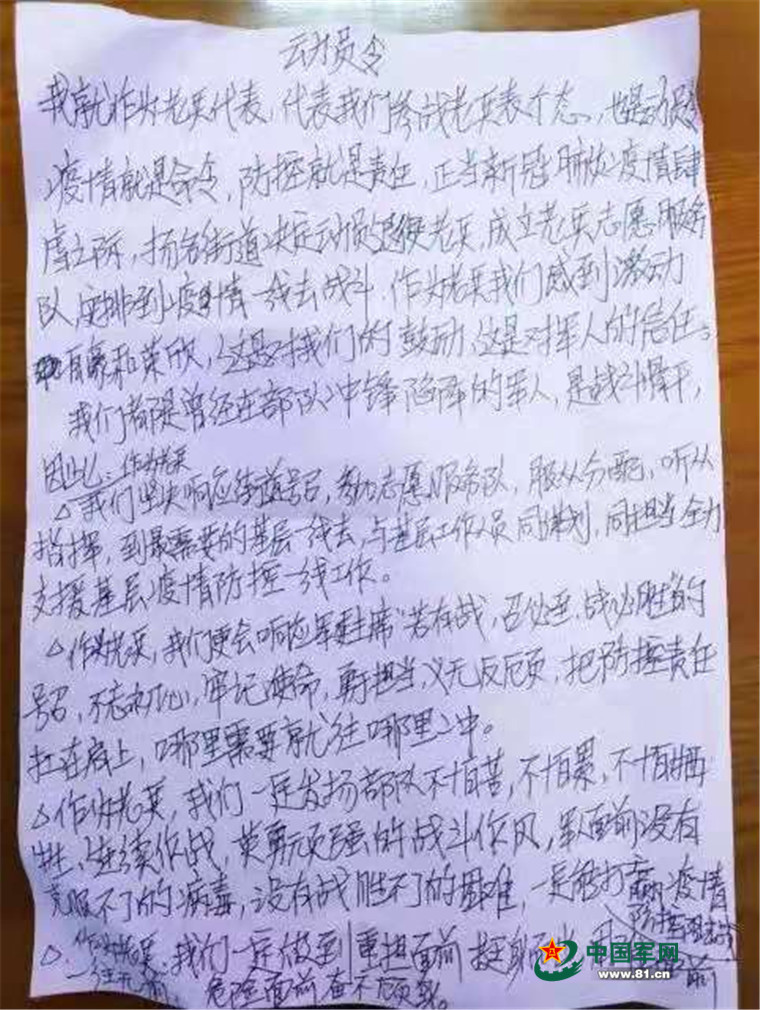 动员令
我就作为老兵代表,代表我们参战老兵表个态,也是动员令
疫情就是命令,防控就是责任,正当新冠肺炎疫情肆
虐之际,扬名街道决定动员退役老兵,成立老兵志愿服务
队安排到疫情一线去战斗.作为老兵我们感到激动
自豪和荣欣,这是对我们的鼓动,这是对军人的信任。
我们都是曾经在部队冲锋陷阵的军人,是战斗骨干,
因此:作为老兵
△我们坚决响应街道号召,参加志愿服务队,服从分配,听从
指挥,到最需要的基层一线去,与基层工作人员同谋划,同担当全力
支援基层疫情防控一线工作。
△作为老兵,我们更会响应军委主席"若有战,召必至,战必胜"的
号召,不忘初心,牢记使命,勇于担当,义无反顾,把防控责任
扛在肩上,哪里需要就往哪里冲。
△作为老兵,我们一定发扬部队不怕苦,不怕累,不怕牺
牲,连续作战,英勇顽强的战斗作风,军人面前没有
克服不了的病毒,没有战胜不了的困难,一定能打赢疫情
防控阻击战
△.作为老兵,我们一定做到重担面前挺身而出,
一往无前,危险面前奋不顾身。
中国军网
www.81.cn